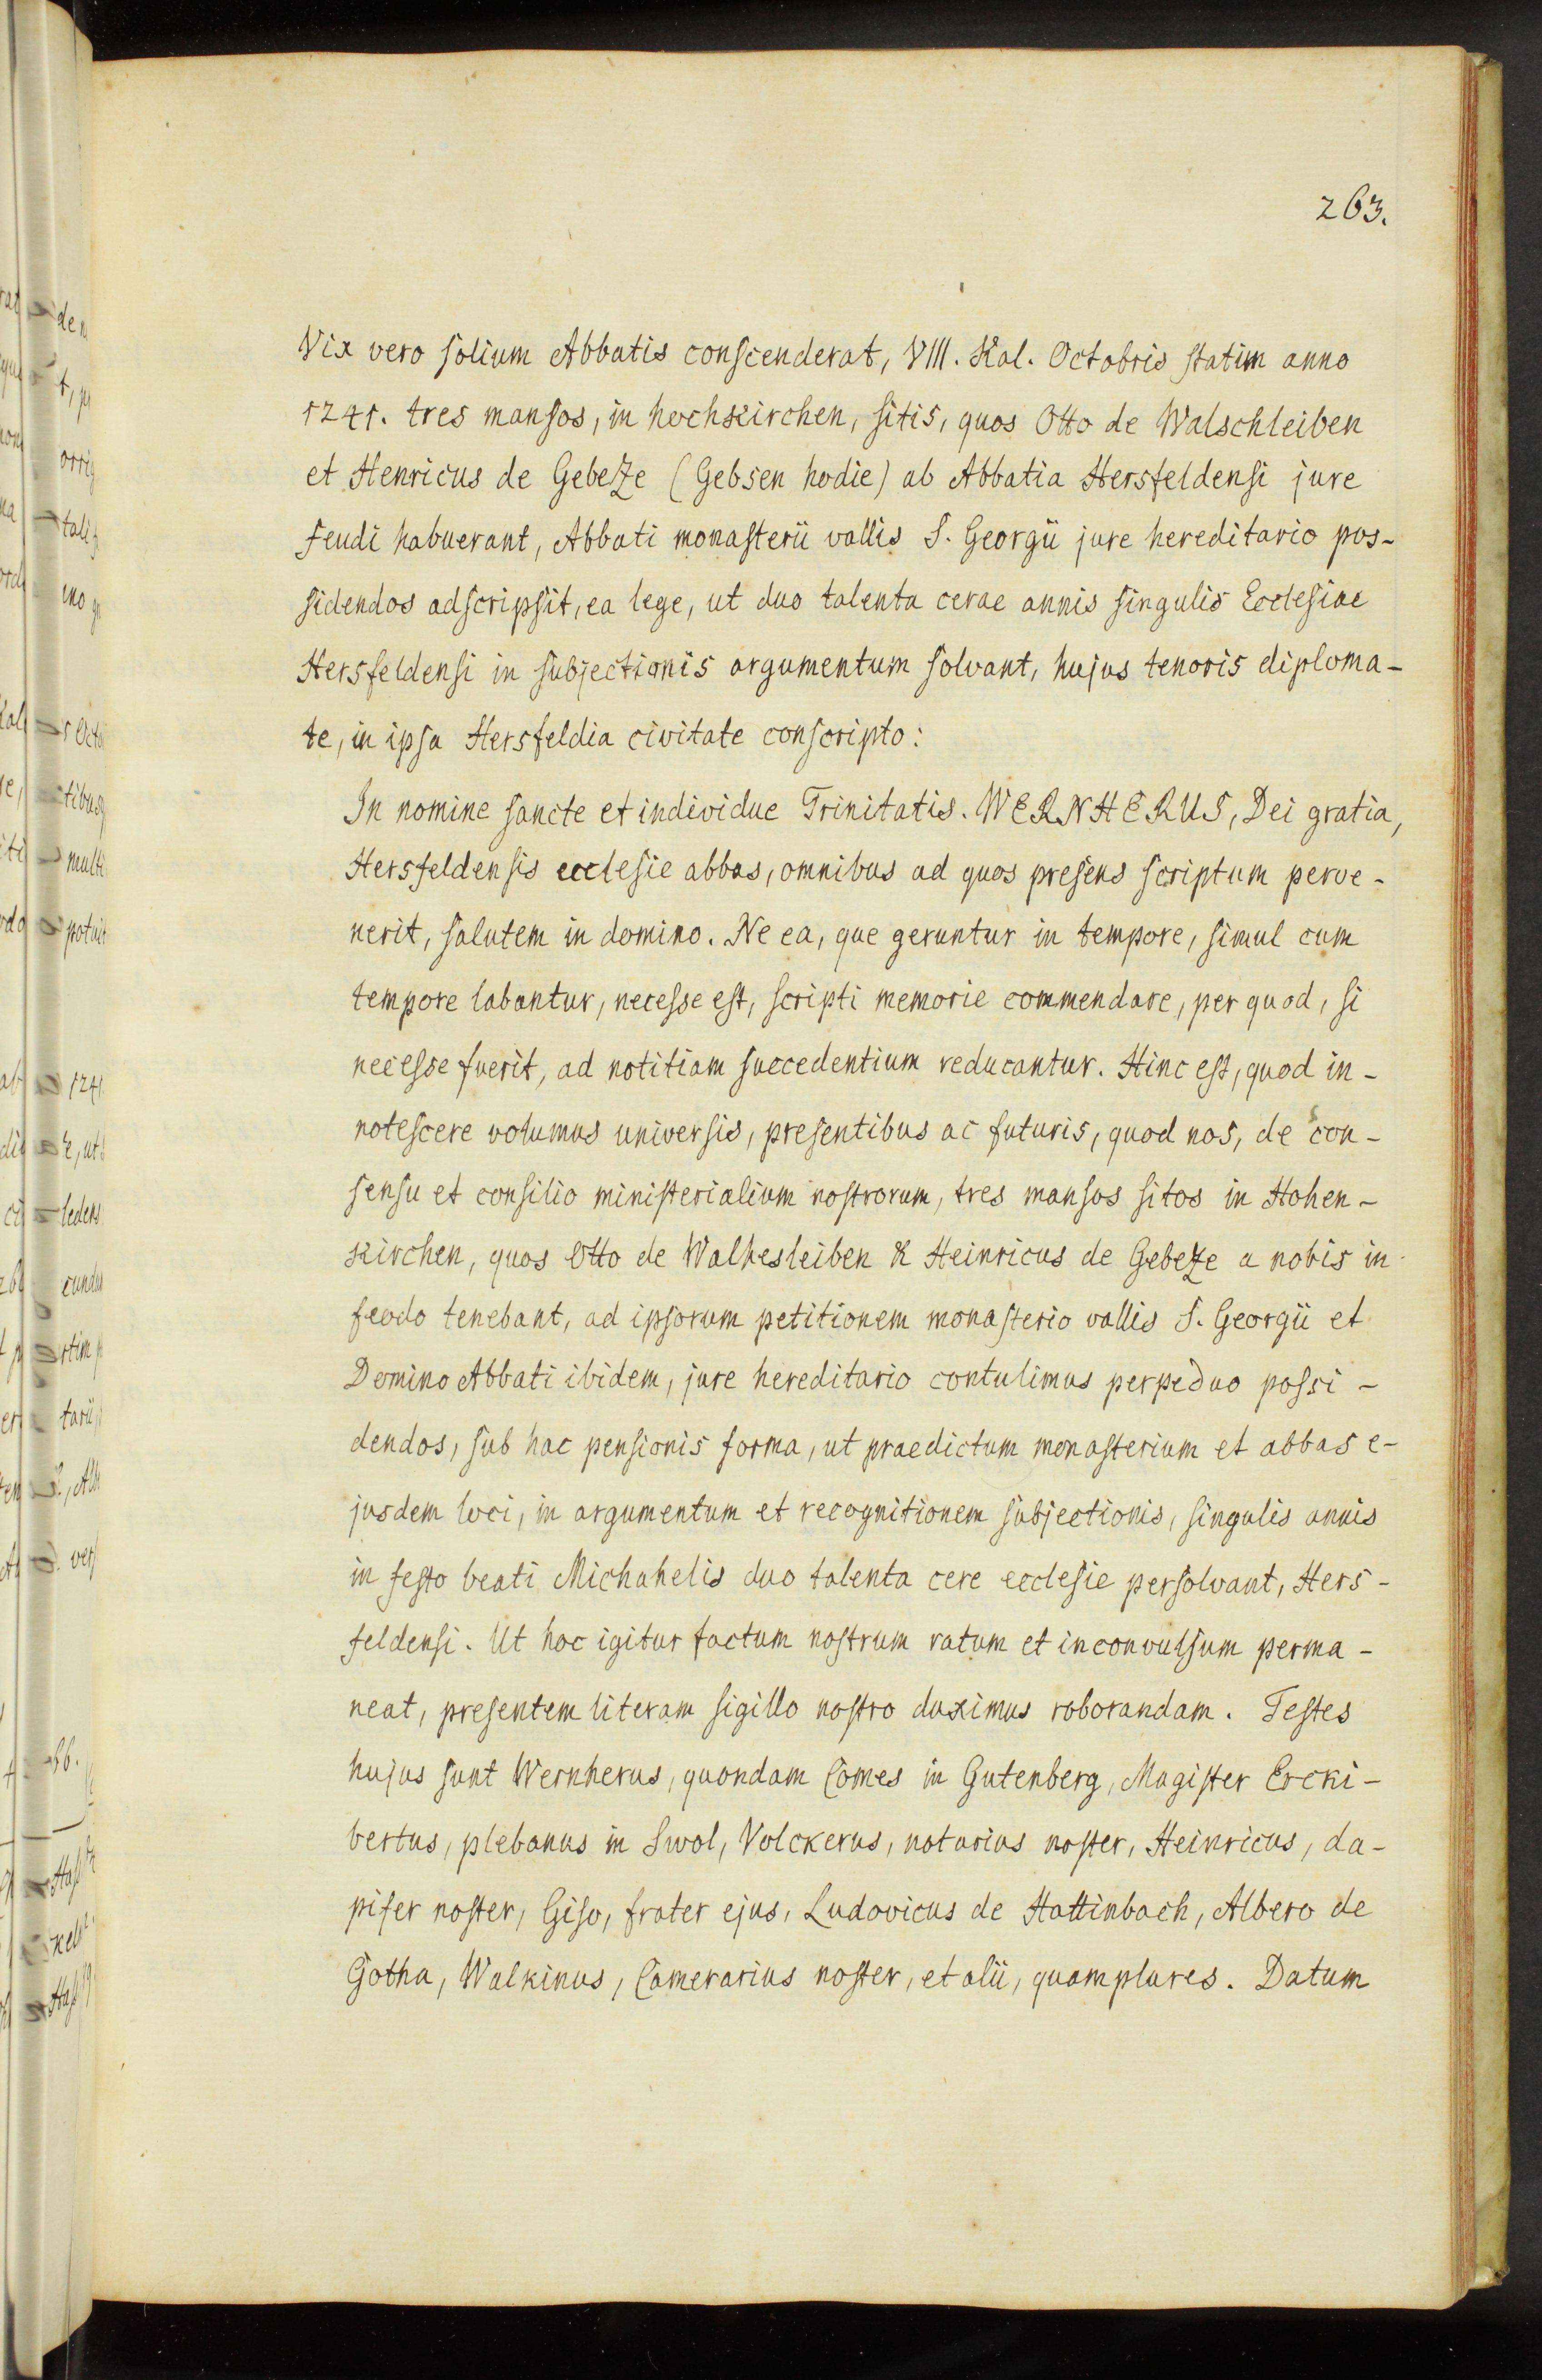 263.
Vix vero solium Abbatis conscenderat, VIII. Kal. Octobris statim anno
1241. tres mansos, in hochkirchen, sitis, quos Otto de Walschleiben
et Henricus de Gebeze (Gebsen hodie) ab Abbatia Hersfeldensi jure
feudi habuerant, Abbati monasterii vallis S. Georgii jure hereditario pos-
sidendos adscripsit, ea lege, ut duo talenta cerae annis singulis Ecclesiae
Hersfeldensi in subjectionis argumentum solvant, hujus tenoris diploma-
te, in ipsa Hersfeldia civitate conscripto:
In nomine sancte et individue Trinitatis. WERNHERUS, Dei gratia,
Hersfeldensis ecclesie abbas, omnibus ad quos presens scriptum perve-
nerit, salutem in domino. Ne ea, que geruntur in tempore, simul cum
tempore labantur, necesse est, scripti memorie commendare, per quod, si
necesse fuerit, ad notitiam succedentium reducantur. Hinc est, quod in-
notescere volumus universis, presentibus ac futuris, quod nos, de con-
sensu et consilio ministerialium nostrorum, tres mansos sitos in Hohen-
kirchen, quos Otto de Walhesleiben & Heinricus de Gebeze a nobis in
feodo tenebant, ad ipsorum petitionem monasterio vallis S. Georgii et
Domino Abbati ibidem, jure hereditario contulimus perpeduo possi-
dendos, sub hac pensionis forma, ut praedictum monasterium et abbas e-
jusdem loci, in argumentum et recognitionem subjectionis, singulis annis
in festo beati Michahelis duo talenta cere ecclesie persolvant, Hers-
feldensi. Ut hoc igitur factum nostrum ratum et inconvulsum perma-
neat, presentem literam sigillo nostro duximus roborandam. Testes
hujus sunt Wernherus, quondam Comes in Gutenberg, Magister Ercki-
bertus, plebanus in Swol, Volckerus, notarius noster, Heinricus, da-
pifer noster, Giso, frater ejus, Ludovicus de Hattinbach, Albero de
Gotha, Walkinus, Camerarius noster, et alii, quamplures. Datum